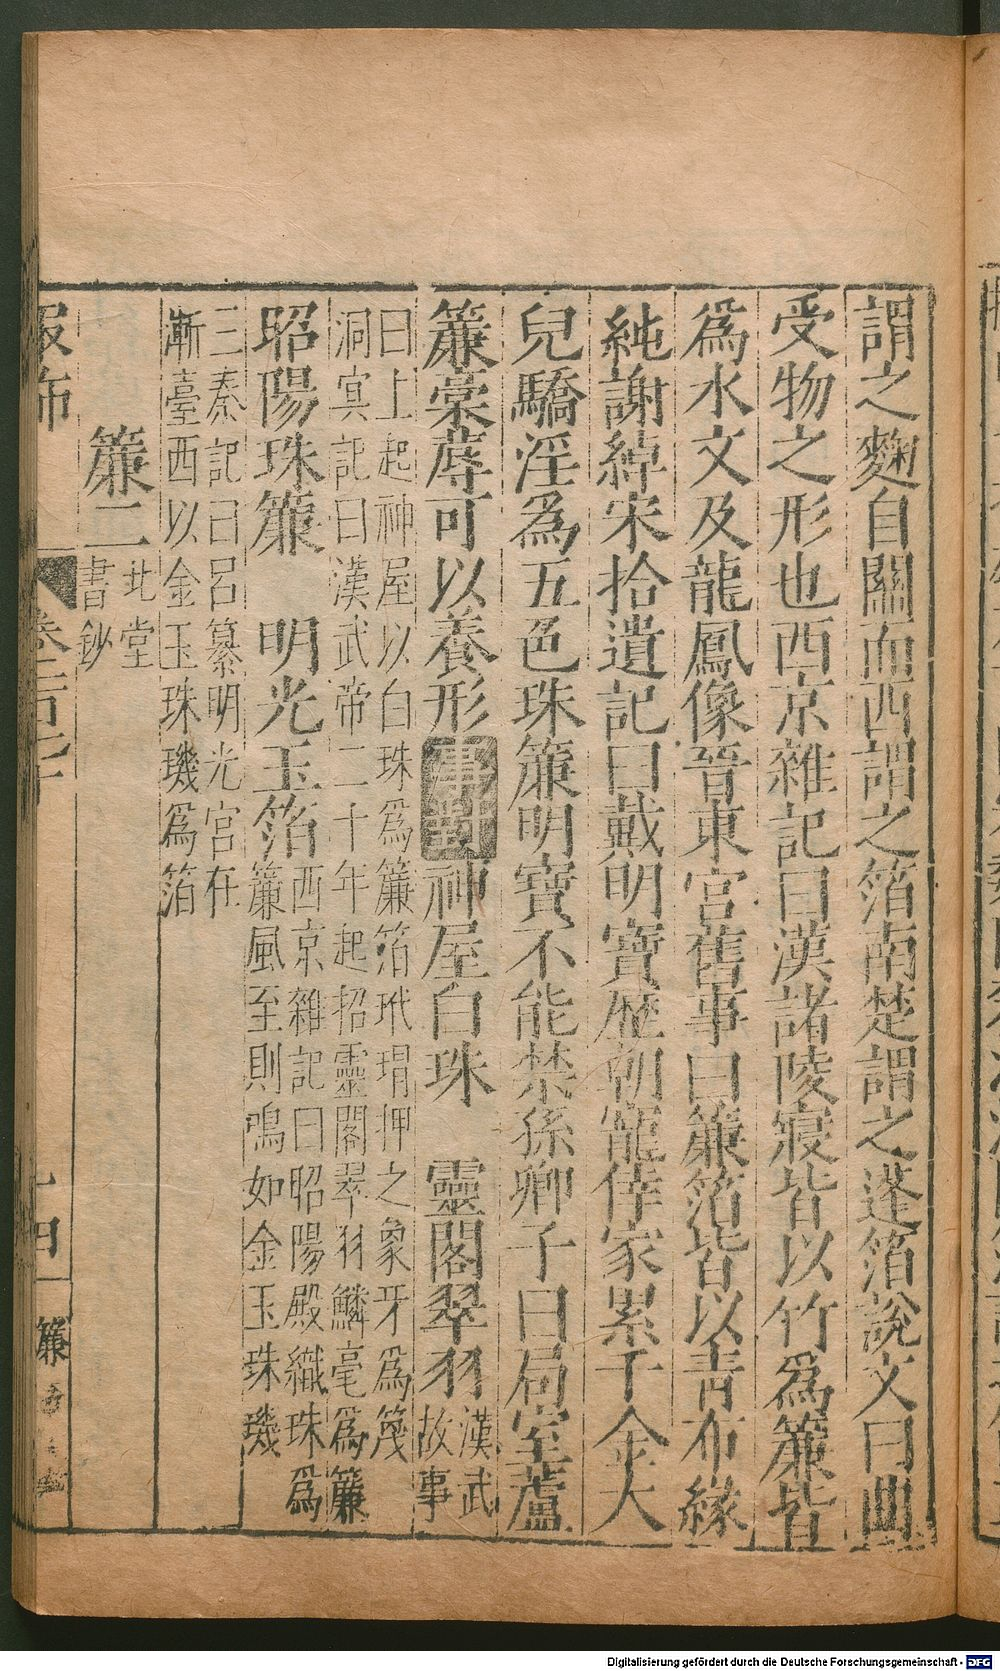 謂之麴自關而西謂之箔南楚謂之蓬箔說文曰曲
受物之形也西京雜記曰漢諸陵寢皆以竹爲簾皆
爲水文及龍鳳像晉東宮舊事曰簾箔皆以青布緣
純謝綽宋拾遺記曰戴明寶歷朝寵倖家累千金大
兒驕淫爲五色珠簾明寶不能禁孫卿子曰局室蘆
簾藁蓐可以養形事對神屋白珠 靈閣翠羽漢武
故事
曰上起神屋以白珠爲簾箔玳瑁押之象牙爲篾
洞㝠記曰漢武帝二十年起招靈閣翠羽鱗毫爲簾
昭陽珠簾 明光玉箔西京雜記曰昭陽殿織珠爲
簾風至則鳴如金玉珠璣
三秦記曰呂纂明光宮在
漸臺西以金玉珠璣爲箔
簾二北堂
書鈔
服飾
十四
簾
Digitalisierung gefördert durch die Deutsche Forschungsgemeinschaft - DFG